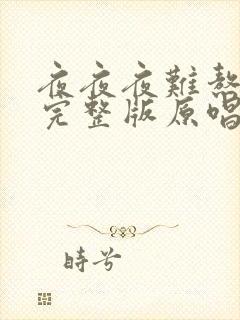 夜夜夜難熬
完整版原唱
時兮